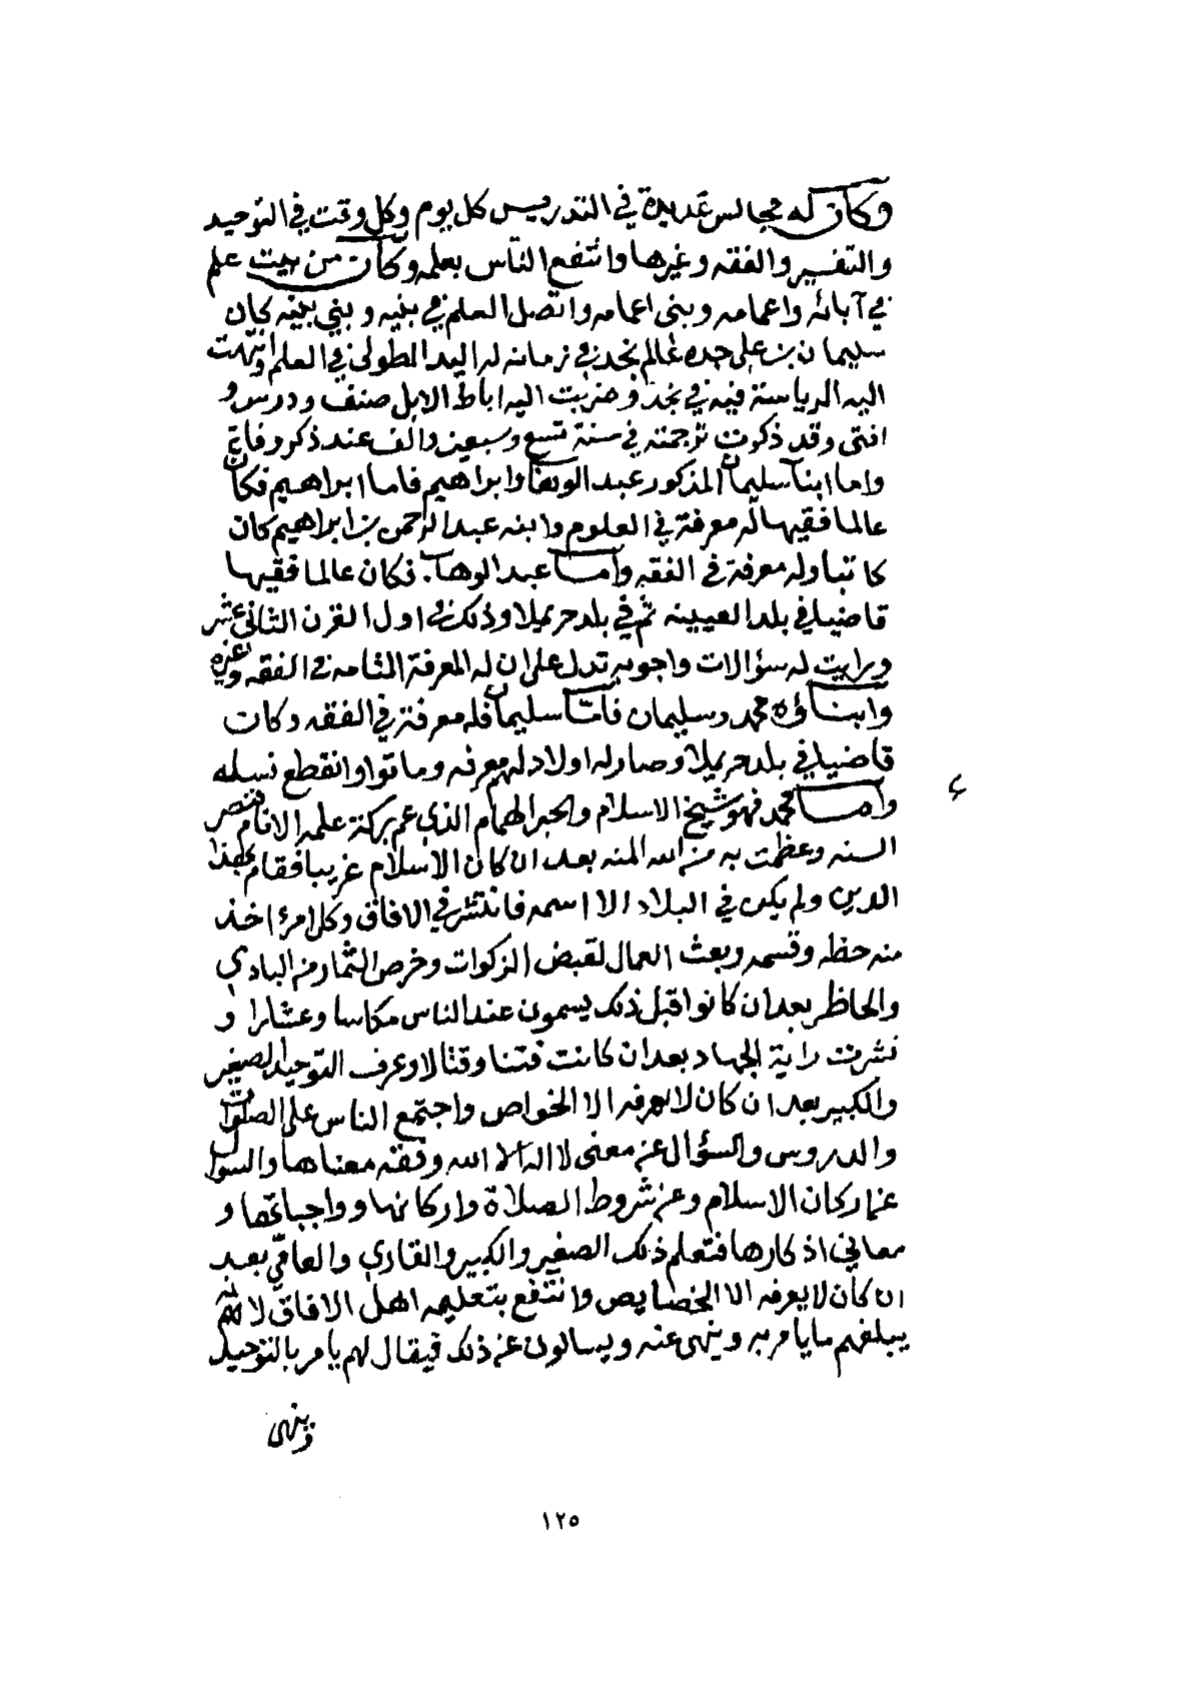 وكان له مجالس عديدة في التدريس كل يوم وكل وقت في التوحيد
والتفسير والفقه وغيرها وانتفع الناس بعلمه وكان من بيت علم
في آبائه واعمامه وبني اعمامه واتصل العلم في بنيه وبني بنيه كان
سليمان بن علي جده عالم نجد في زمانه له اليد الطولى في العلم وانتهت
اليه الرياسة فيه في نجد وضربت اليه اباط الابل صنف ودرس و
افتى وقد ذكرت ترجمته في سنة تسع وسبعين والف عند ذكر وفاته
واما ابنا سليمان المذكور عبد الوهاب وابراهيم فاما ابراهيم فكان
عالما فقيها له معرفة في العلوم وابنه عبد الرحمن بن ابراهيم كان
كاتبا وله معرفة في الفقه واما عبد الوهاب فكان عالما فقيها
قاضيا في بلد العيينه ثم في بلد حريملا وذلك في اول القرن الثاني عشر
ورايت له سؤالات واجوبه تدل على ان له المعرفة التامه في الفقه وغيره
وابناؤه محمد وسليمان فاما سليمان فله معرفة في الفقه وكان
قاضيا في بلد حريملا وصار له اولاد لهم معرفه وماتوا وانقطع نسله
واما محمد فهو شيخ الاسلام والحبر الهمام الذي عم بركة علمه الانام فنصر
السنه وعظمت به من الله المنه بعد ان كان الاسلام غريبا فقام بهذا
الدين ولم يكن في البلاد الا اسمه فانتشر في الافاق وكل امرؤ اخذ
منه حظه وقسمه وبعث العمال لقبض الزكوات وخرص الثمار من البادي
والحاظر بعد ان كانوا قبل ذلك يسمون عند الناس مكاسا وعشارا و
نشرت راية الجهاد بعد ان كانت فتنا وقتالا وعرف التوحيد الصغير
والكبير بعد ان كان لا يعرفه الا الخواص واجتمع الناس على الصلوات
والدروس والسؤال عن معنى لا اله الا الله وفقه معناها والسوال
عن اركان الاسلام وعن شروط الصلاة واركانها وواجباتها و
معاني اذكارها فتعلم ذلك الصغير والكبير والقاري والعامّي بعد
ان كان لا يعرفه الا الخصايص وانتفع بتعليمه اهل الافاق لانهم
يبلغهم ما يامر به وينهى عنه ويسالون عن ذلك فيقال لهم يامر بالتوحيد
وينهى
١٢٥